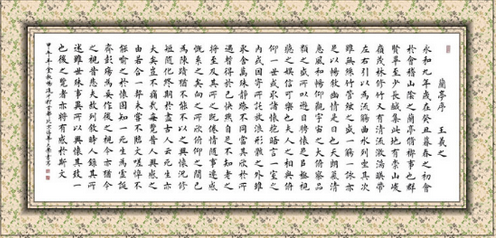 蘭亭序 王羲之
永和九年歲在癸丑暮春之初會
於會稽山陰之蘭亭脩禊事也群
賢畢至少長咸集此地有崇山峻
嶺茂林修竹又有清流激湍映帶
左右引以為流觴曲水列坐其次
雖無絲竹管弦之盛一觴一詠亦
足以暢敘幽情是日也天朗氣清
惠風和暢仰觀宇宙之大俯察品
類之盛所以遊目騁懷足以極視
聽之娛信可樂也夫人之相與俯
仰一世或取諸懷抱晤言一室之
內或因寄所託放浪形骸之外雖
趣舍萬殊靜躁不同當其欣於所
遇暫得於己快然自足不知老之
將至及其所之既倦情隨事遷感
慨系之矣向之所欣俯仰之間已
為陳跡猶不能不以之興懷況修
短隨化終期於盡古人云死生亦
大矣豈不痛哉每覽昔人興感之
由若合一契未嘗不臨文嗟悼不
能喻之於懷固知一死生為虛誕
齊彭殤為妄作後之視今亦猶今
之視昔悲夫故列敘時人錄其所
述雖世殊事異所以興懷其致一
也後之覽者亦將有感於斯文
甲午年